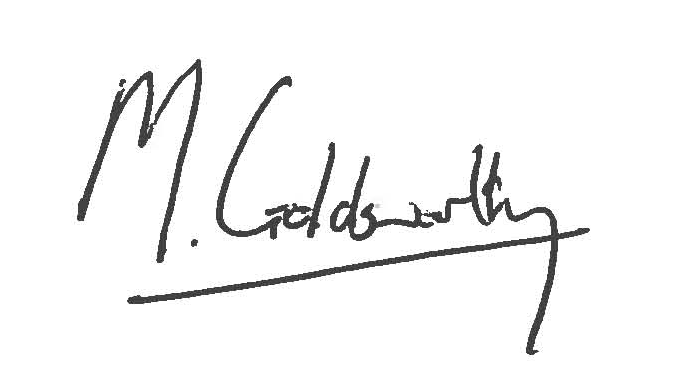 M. Goldsworthy